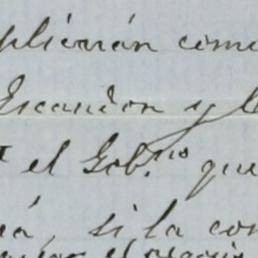 plicarán com
Escandon y l
el Gob.no que
rá, si la con